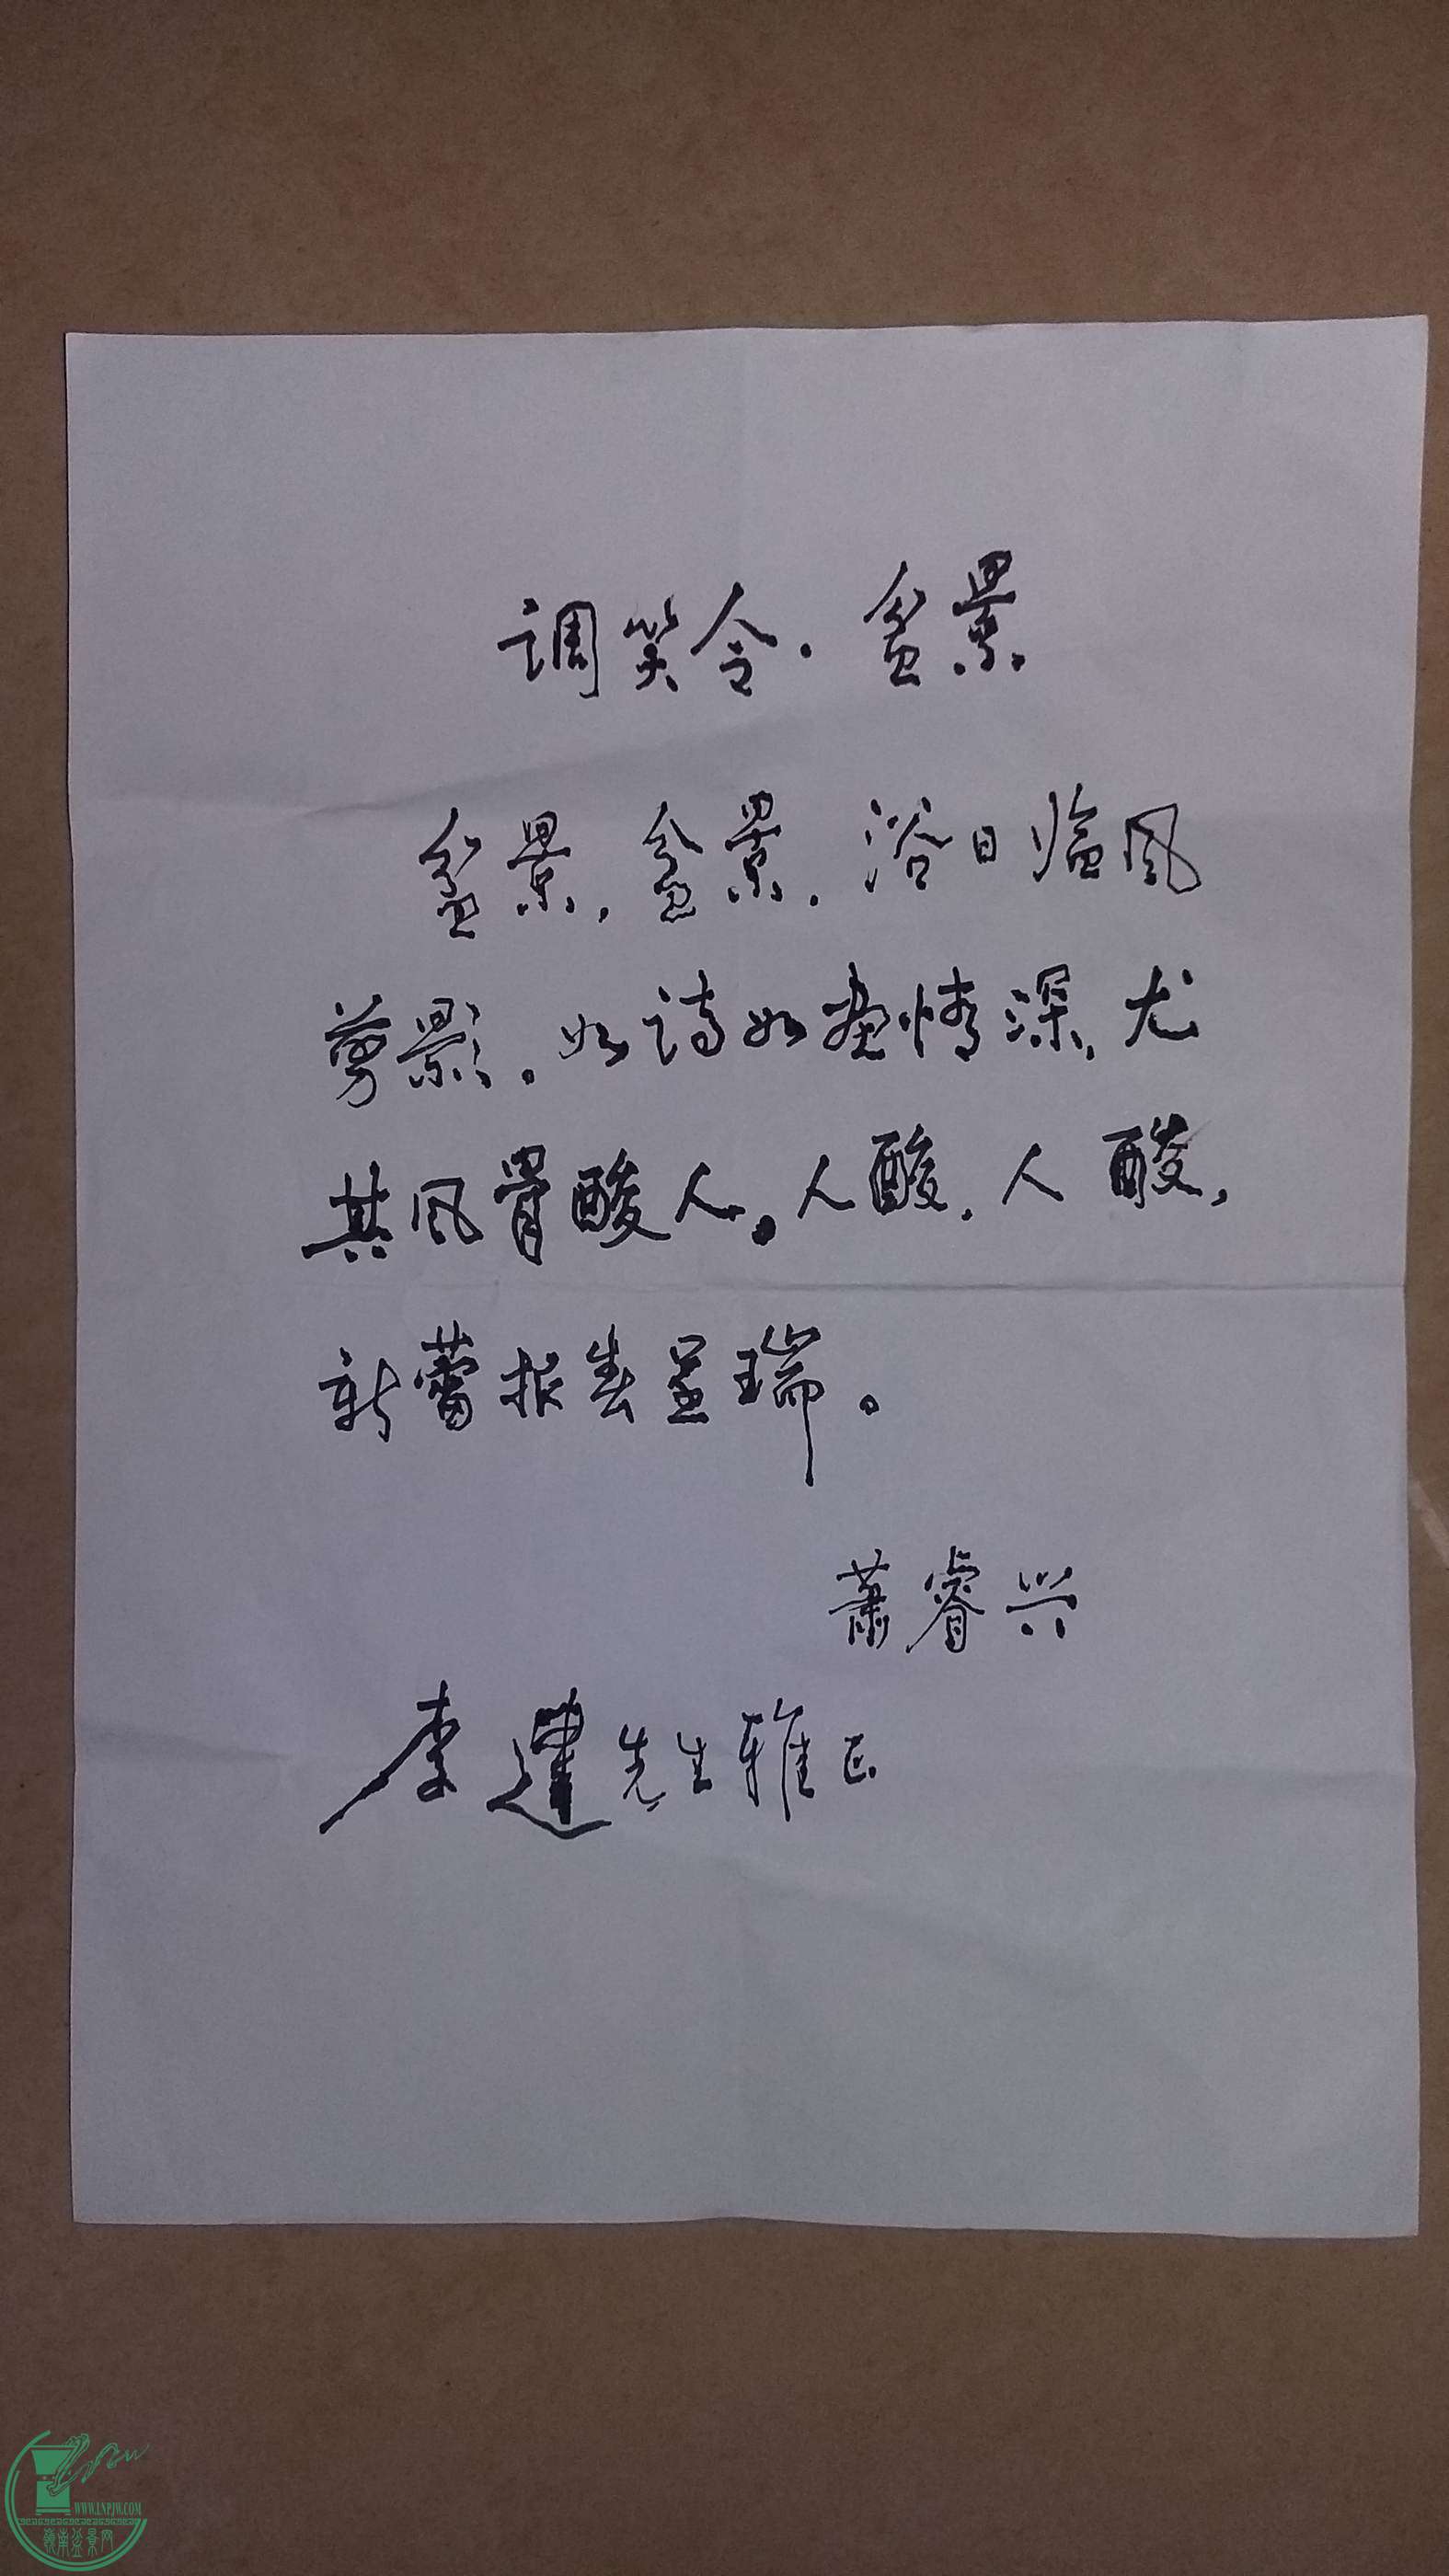 调笑令·盆景
盆景，盆景，浴日临风
剪影。如诗如画情深，尤
其风骨酸人。人酸，人酸，
新蕾报春呈瑞。
萧睿兴
李建先生雅正
WWW.LNPJW.COM
岭南盆景网